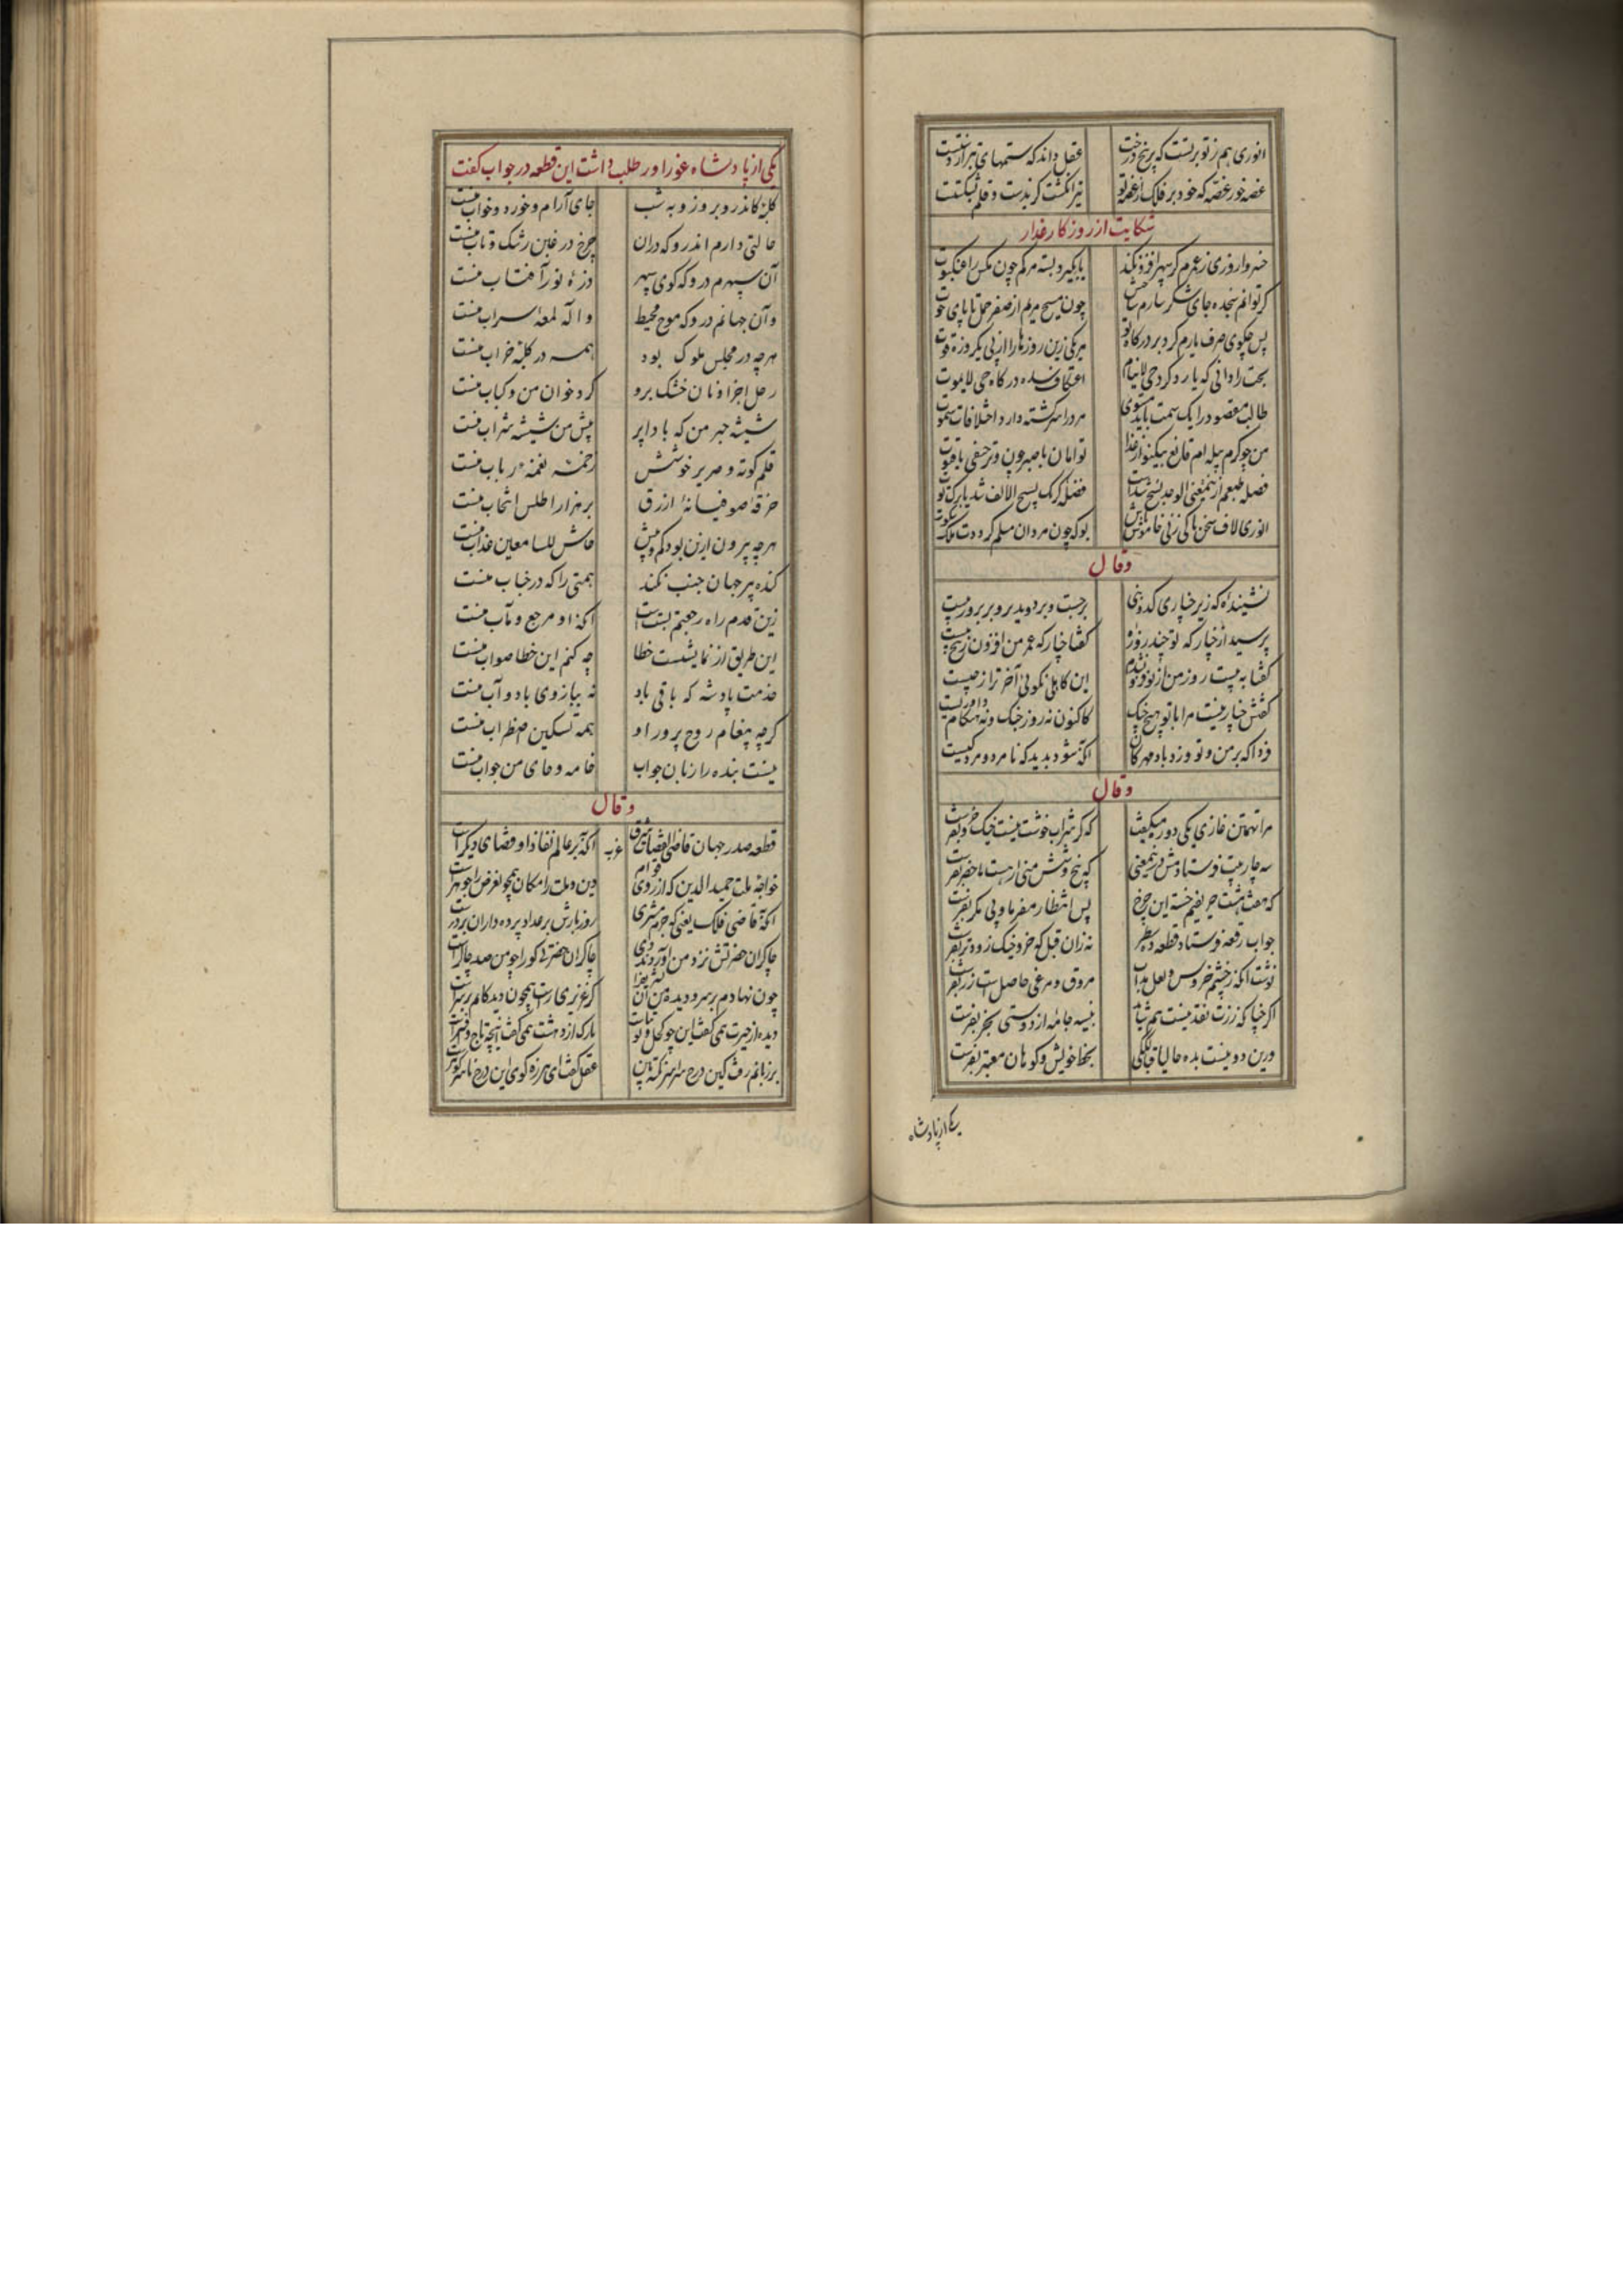 انوری هم ز تو برتست که بر بیخ درخت عقل داند که ستمهای تبر از دستست
غصه خور غصه که خود بر فلک از غصه تو تیر انگشت گزیدست و قلم بشکستست
شکایت از روزگار غدار
خسروا روزی ز عمرم گر سپهر افزون کند
گر توانم سجده جای شکر سازم ساحتش چون مسیح مریم از صفر حمل تا پای حوت
پس چگوی صرف یارم کرد بر درگاه تو هر یکی زین روزها را از پی یکروزه قوت
بخت را دانی که یارد کرد حی لاینام اعتکاف سده درگاه حی لایموت
طالب مقصود را یک سمت باید مستوی مرد را سرگشته دارد اختلافات سموت
من چو کرم پیله ام قانع بیکنوع از غذا
انوری لاف سخن تا کی زنی خاموش باش بو که چون مردان مسلم کرددت ملک سکوت
وقال
نشنیده که زیر چناری کدو بنی برجست و بر دوید برو بر بروز بیست
پرسید از چنار که تو چند روزه گفتا چنار که عمر من افزون ز بیست
گفتا به بیست روز من از تو فزون شدم این کاهلی نگوئی آخر ترا ز چیست
گفتش چنار نیست مرا با تو هیچ جنگ کاکنون نه روز جنگ و نه هنگام داوریست
فردا که بر من و تو وزد باد مهرکان آنکه شود بدید که نامرد و مرد کیست
وقال
مرا تهمتن غازی یکی دو رمیگفت که گر شراب خوشت نیست خیک خر بفرست
سه چار بیت فرستادمش در نمعنی که پنج و شش منی ار هست ماحضر بفرست
که هفت هشت حریفیم خسته این چرخ پس انتظار مفرما وبی مکر بفرست
جواب رقعه فرستاد قطعه ده سطر
نوشت آنکه ز چشم خروس و لعل مذاب مروق و مرغی حاصل است زر بفرست
اگر چنانکه زرت نقد نیست هم شاید بنیسه جامه از دوستی بخر بفرست
ورین دو نیست بده حالیا قبالگکی بخط خویش و گوهان معتبر بفرست
یکی از پادشاه
یکی از پادشاه غور او را طلب داشت این قطعه در جواب گفت
کلبهٔ کاندرو بروز و به شب جای آرام و خورد و خواب منست
حالتی دارم اندرو که دران چرخ در غبن رشک و تاب منست
آن سپهرم درو که گوی سپهر ذرهٔ نور آفتاب منست
وآن جهانم درو که موج محیط واله لمعهٔ سراب منست
هرچه در مجلس ملوک بود همه در کلبه خراب منست
رحل اجزا و نان خشک برو گرد خوان من و کباب منست
شیشه حبر من که بادا پر پیش من شیشه شراب منست
قلم کوته و صریر خوشش زخمه نغمهٔ رباب منست
خرقهٔ صوفیانهٔ ازرق بر هزار اطلس انتخاب منست
هرچه بیرون ازین بود کم و بیش حاش للسامعین عذاب منست
گنده پیر جهان جنب نکند همتی را که در جناب منست
زین قدم راه رجعتم بستست آنکه او مرجع و مآب منست
این طریق از نمایشست خطا چه کنم این خطا صواب منست
خدمت پادشه که باقی باد نه ببازوی باد و آب منست
گرچه پیغام روح پرور او همه تسکین اضطراب منست
نیست بنده را زبان جواب خامه و جای من جواب منست
وقال
قطعه صدر جهان قاضی القضاة شرق غرب آنکه بر عالم نفاذ او قضای دیگر است
خواجه ملت حمیدالدین که از روی قوام دین و ملت را مکان همچو عرض را جوهر است
آنکه قاضی فلک یعنی که جرم مشتری روز بارش بر عداد پرده داران بر در است
چاکران حضرتش نزد من آوردند دی چاکران حضرتی کو را چو من صد چاکر است
چون نهادم بر سر و دیده
دیده از حیرت همی گفت این چو کحل و توتیاست تارک از دهشت همی گفت اینچه تاج و افسر است
بر زبانم رفت کین درج سراسر نکته بین عقل گفت ای هرزه گوی این درج نامه گوهر است